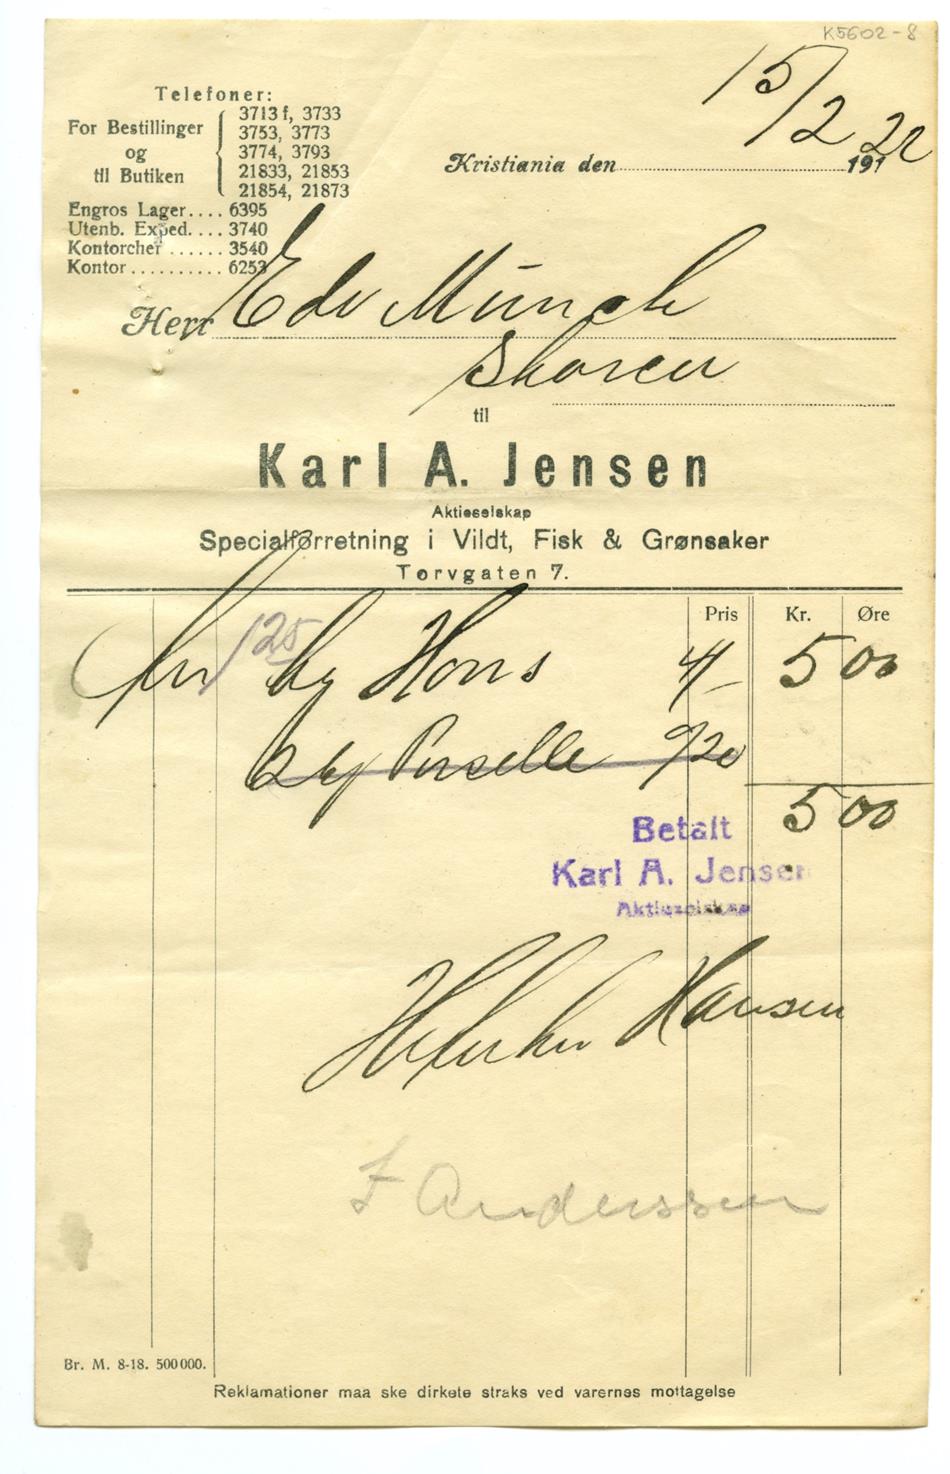 K5602-8
15/2 22
Telefoner:
For Bestillinger og til Butiken
3713 f, 3733
3753, 3773
3774, 3793
21833, 21853
21854, 21873
Kristiania den 191
Engros Lager.... 6395
Utenb. Exped.... 3740
Kontorchef ...... 3540
Kontor .......... 6253
Herr Edv Münch
Skøien
til
Karl A. Jensen
Aktieselskap
Specialforretning i Vildt, Fisk & Grønsaker
Torvgaten 7.
Pris Kr. Øre
1 25 kg Høns 4/- 5 00
2 kg Persille 9/20
5 00
Betalt
Karl A. Jensen
Aktieselskap
Hansen
F Anderssen
Br. M. 8-18. 500000.
Reklamationer maa ske dirkete straks ved varernes mottagelse